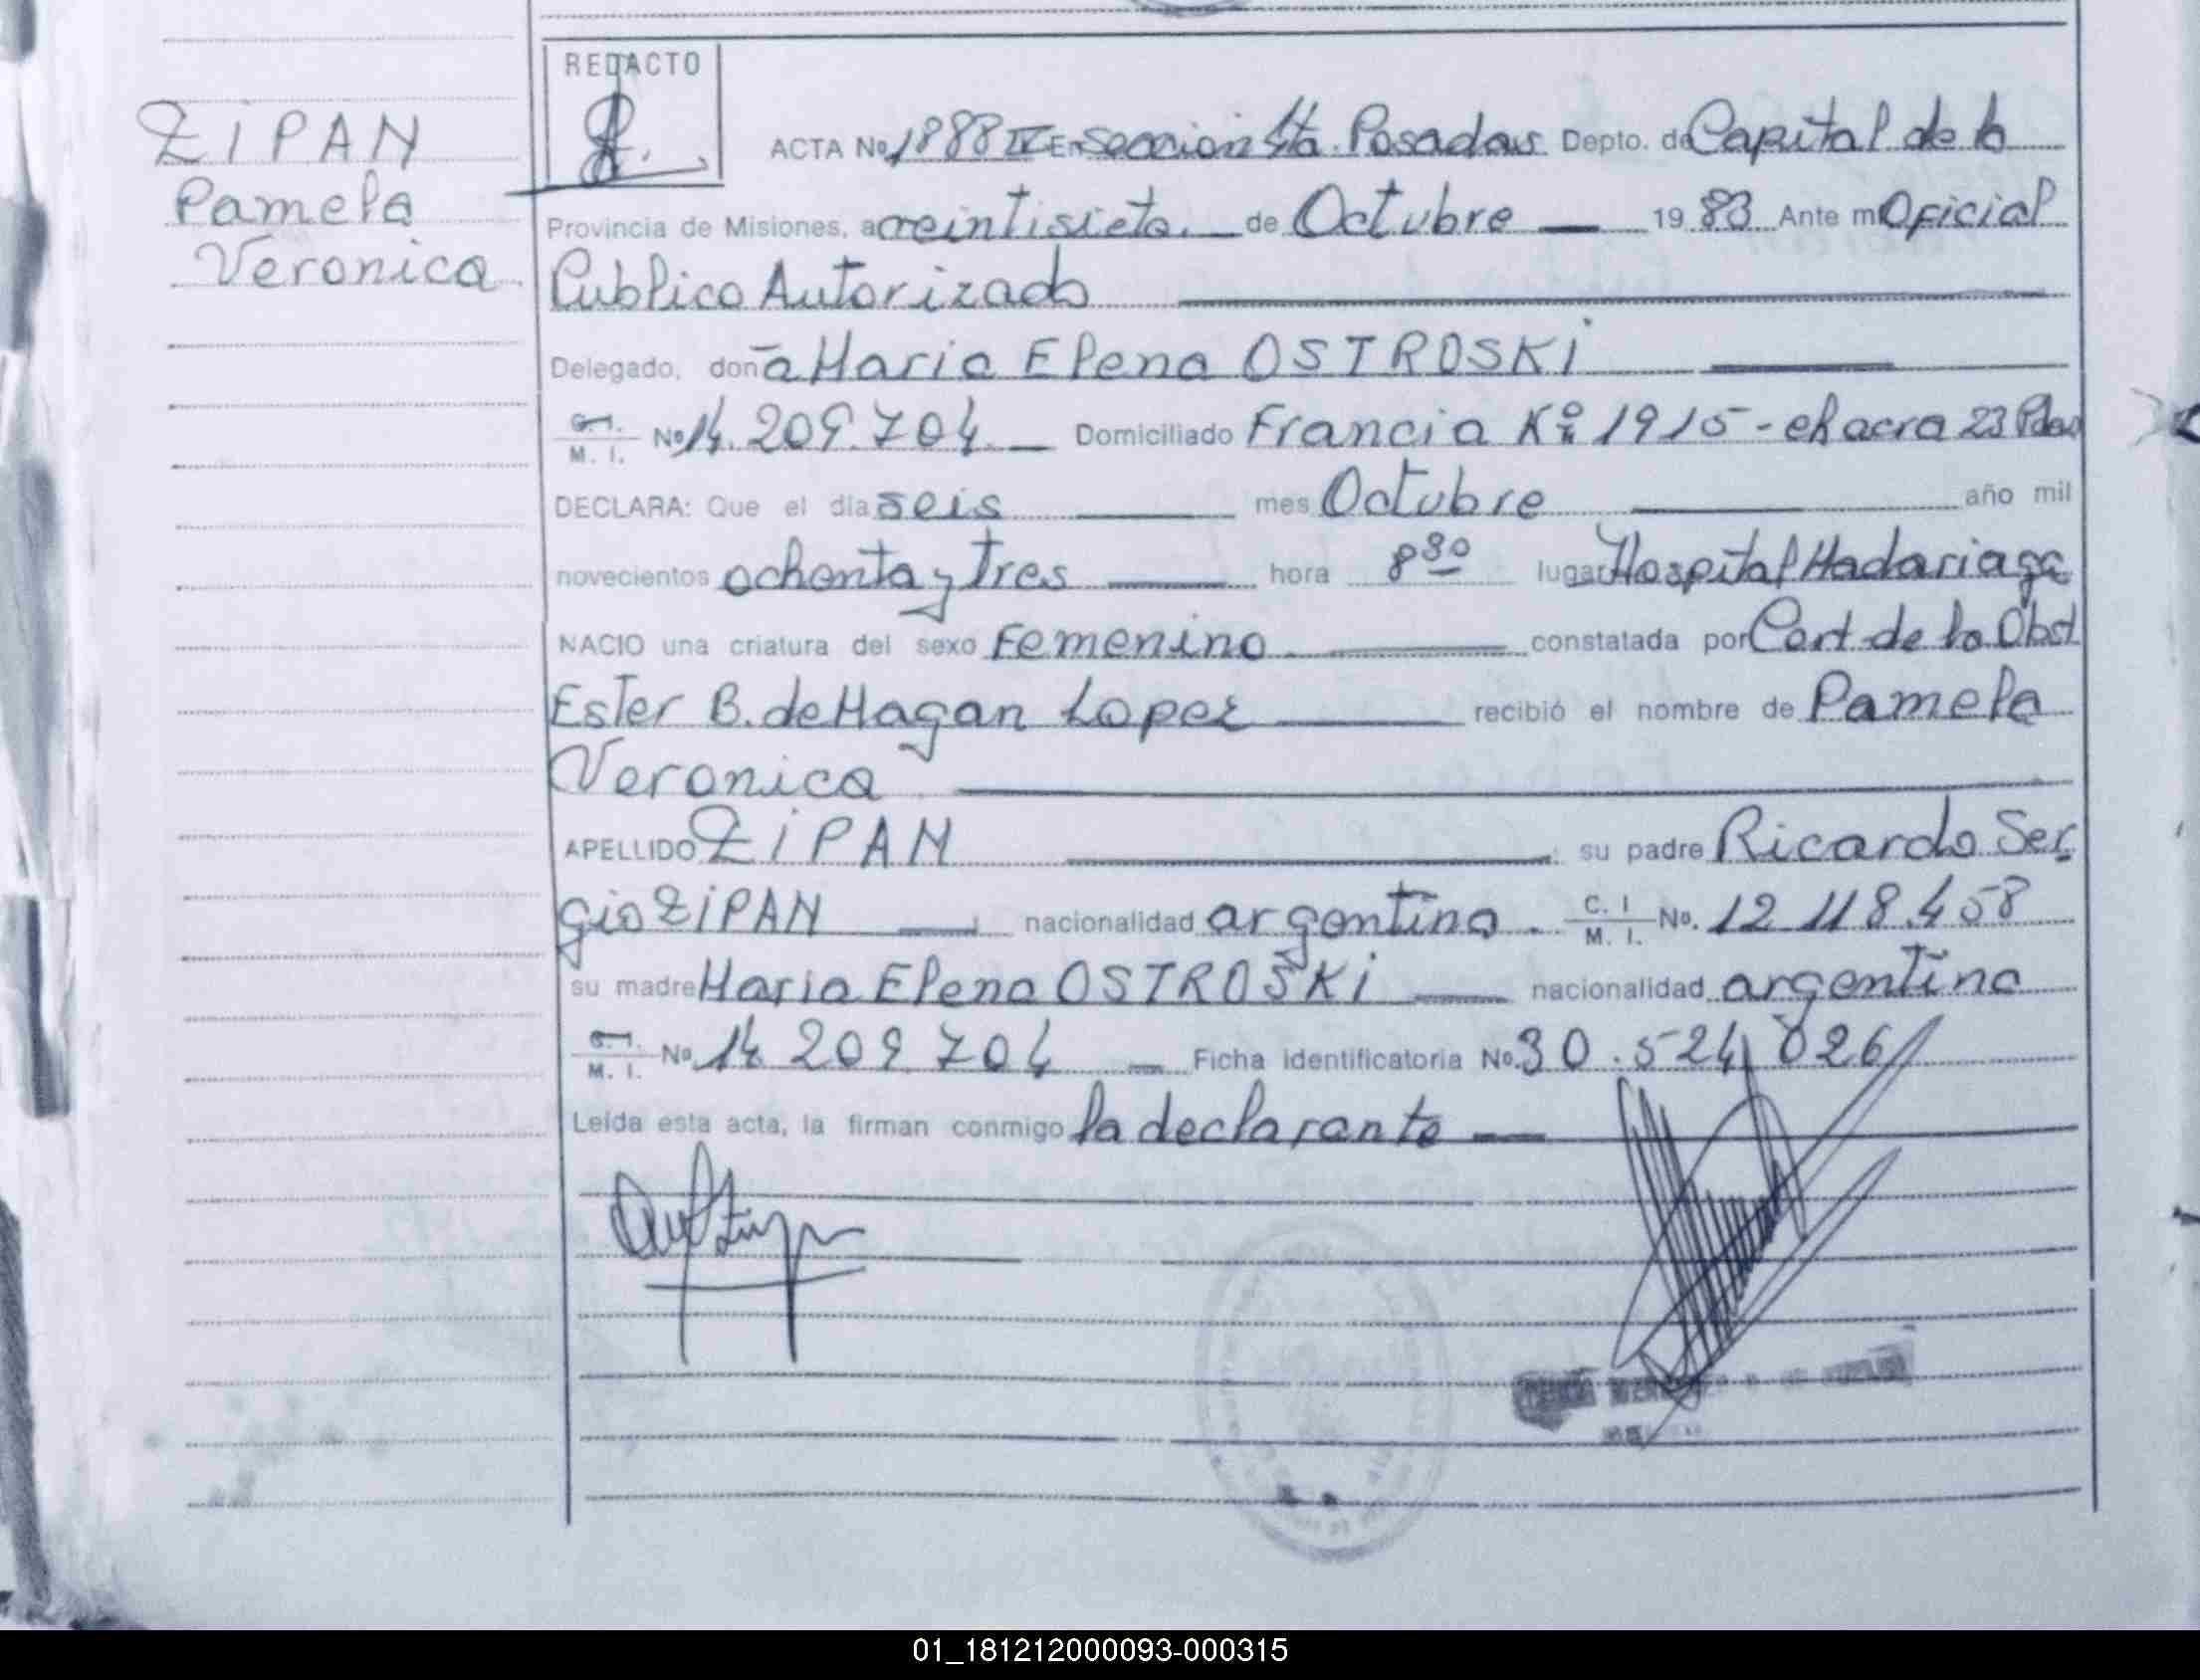 ZIPAN
Pamela
Veronica
REDACTO
ACTA Nº 1888 IV En Seccion 4ta. Posadas Depto. de Capital de la
Provincia de Misiones, a veintisiete. de Octubre 19 83 Ante mi Oficial
Publico Autorizado
Delegado, doña Maria Elena OSTROSKI
C. I. M. I. Nº 14.209.704. Domiciliado Francia Kº 1915 - chacra 23 Pdas
DECLARA: Que el día seis mes Octubre año mil
novecientos ochenta y tres hora 8 30 lugar Hospital Madariaga
NACIO una criatura del sexo Femenino constatada por Cert. de la Obst.
Ester B. de Magan Lopez recibió el nombre de Pamela
Veronica
APELLIDO ZIPAN su padre Ricardo Ser
gio ZIPAN nacionalidad argentina. C. I M. I. No. 12.118.458
su madre Maria Elena OSTROSKI nacionalidad argentina
C. I. M. I. Nº 14.209.704 Ficha identificatoria Nº 30.524.026
Leída esta acta, la firman conmigo la declarante
01_181212000093-000315